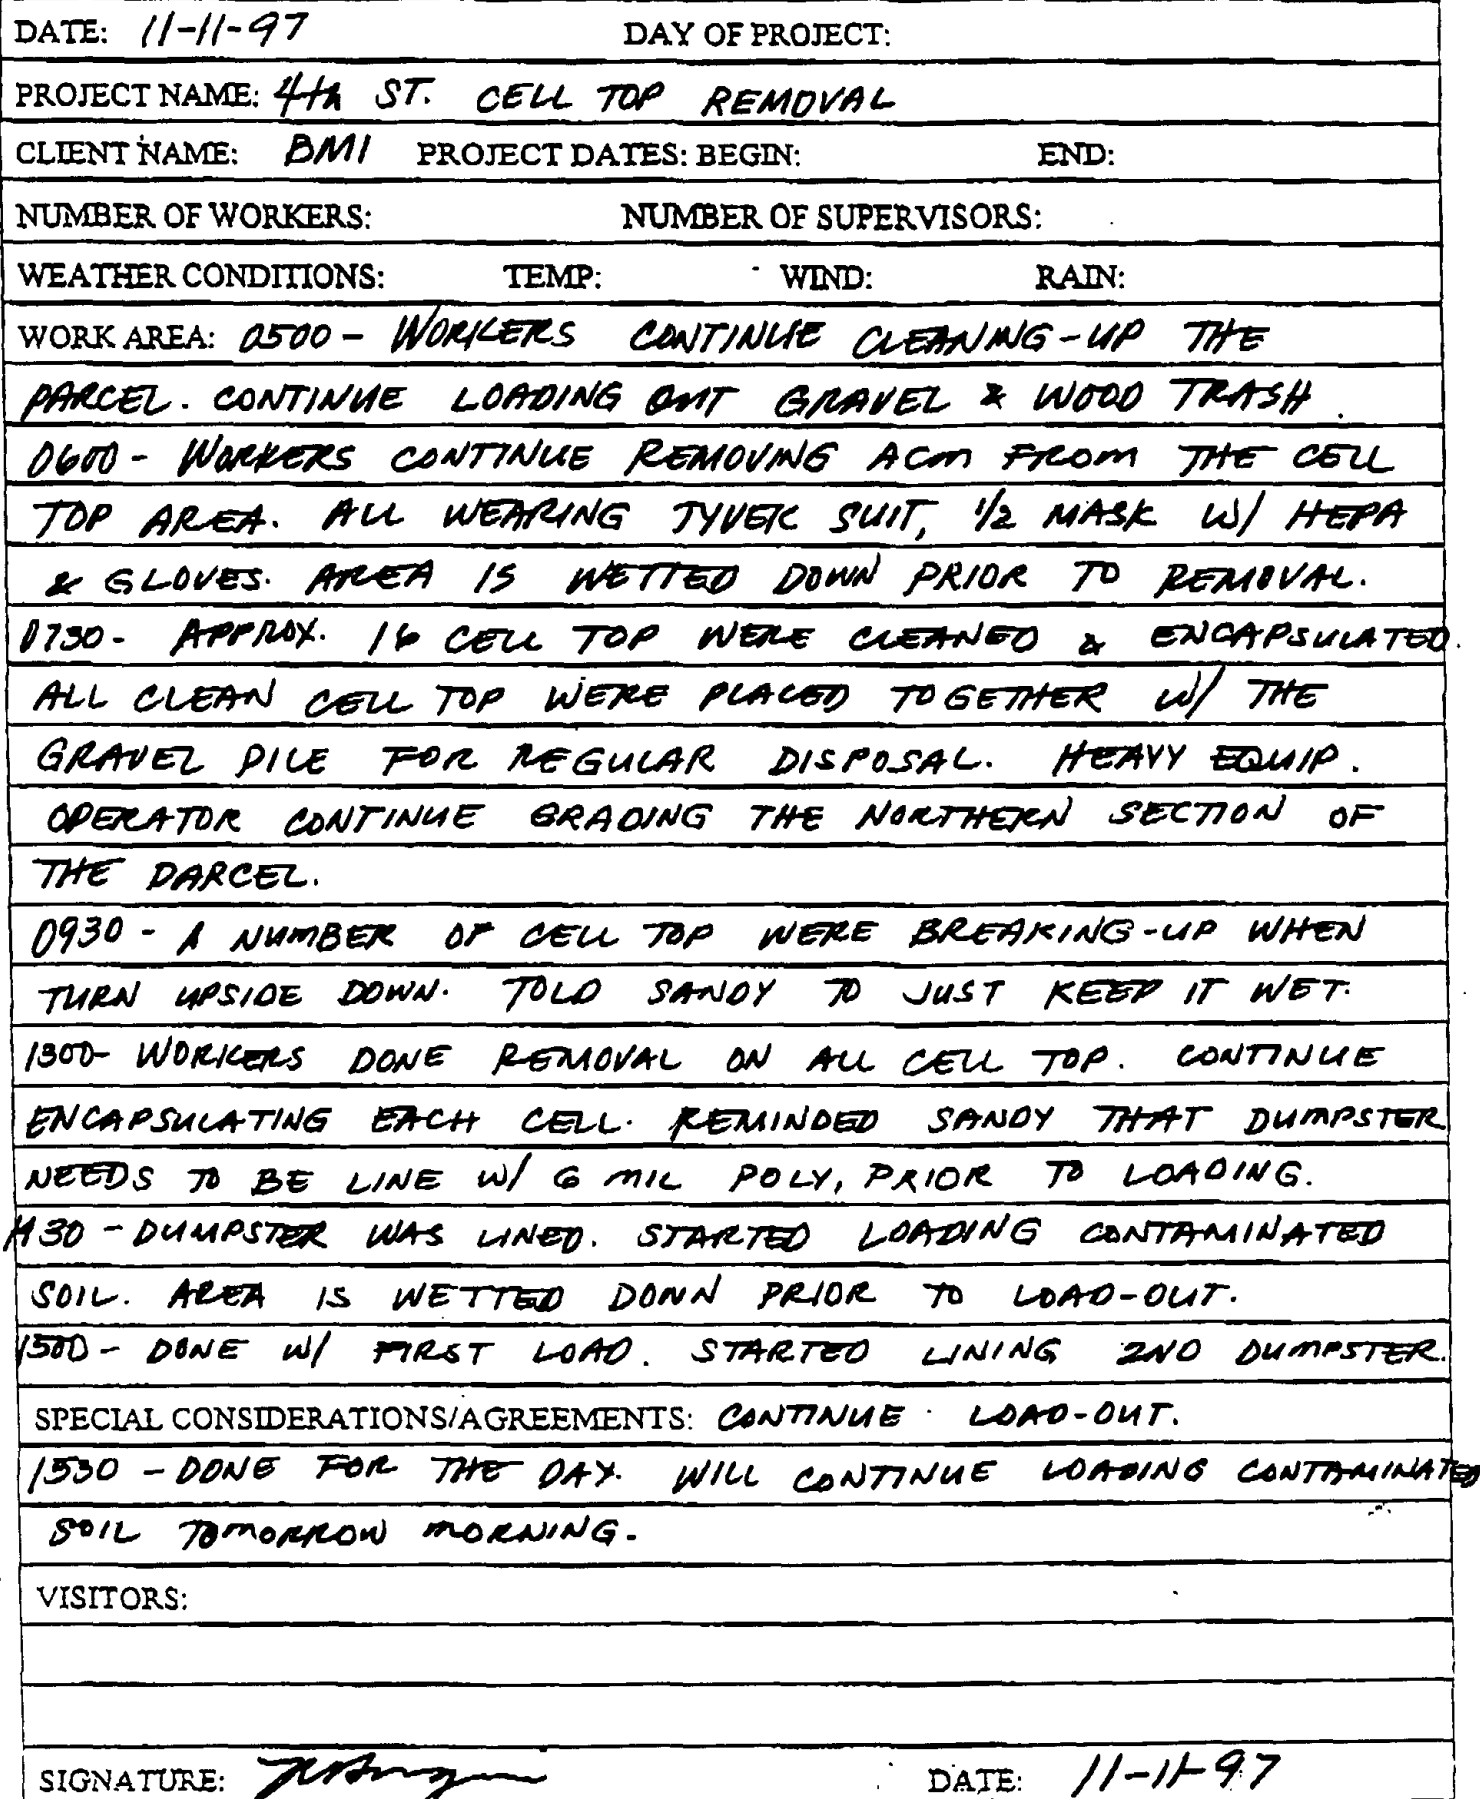 DATE: 11-11-97 DAY OF PROJECT:
PROJECT NAME: 4th ST. CELL TOP REMOVAL
CLIENT NAME: BMI PROJECT DATES: BEGIN: END:
NUMBER OF WORKERS: NUMBER OF SUPERVISORS:
WEATHER CONDITIONS: TEMP: WIND: RAIN:
WORK AREA: 0500 - WORKERS CONTINUE CLEANING-UP THE
PARCEL. CONTINUE LOADING OUT GRAVEL & WOOD TRASH.
0600 - WORKERS CONTINUE REMOVING ACM FROM THE CELL
TOP AREA. ALL WEARING TYVEK SUIT, 1/2 MASK W/ HEPA
& GLOVES. AREA IS WETTED DOWN PRIOR TO REMOVAL.
0730 - APPROX. 16 CELL TOP WERE CLEANED & ENCAPSULATED.
ALL CLEAN CELL TOP WERE PLACED TOGETHER W/ THE
GRAVEL PILE FOR REGULAR DISPOSAL. HEAVY EQUIP.
OPERATOR CONTINUE GRADING THE NORTHERN SECTION OF
THE PARCEL.
0930 - A NUMBER OF CELL TOP WERE BREAKING-UP WHEN
TURN UPSIDE DOWN. TOLD SANDY TO JUST KEEP IT WET.
1300 - WORKERS DONE REMOVAL ON ALL CELL TOP. CONTINUE
ENCAPSULATING EACH CELL. REMINDED SANDY THAT DUMPSTER
NEEDS TO BE LINE W/ 6 MIL POLY, PRIOR TO LOADING.
1430 - DUMPSTER WAS LINED. STARTED LOADING CONTAMINATED
SOIL. AREA IS WETTED DOWN PRIOR TO LOAD-OUT.
1500 - DONE W/ FIRST LOAD. STARTED LINING 2ND DUMPSTER.
SPECIAL CONSIDERATIONS/AGREEMENTS: CONTINUE LOAD-OUT.
1530 - DONE FOR THE DAY. WILL CONTINUE LOADING CONTAMINATED
SOIL TOMORROW MORNING.
VISITORS:
SIGNATURE: DATE: 11-11-97